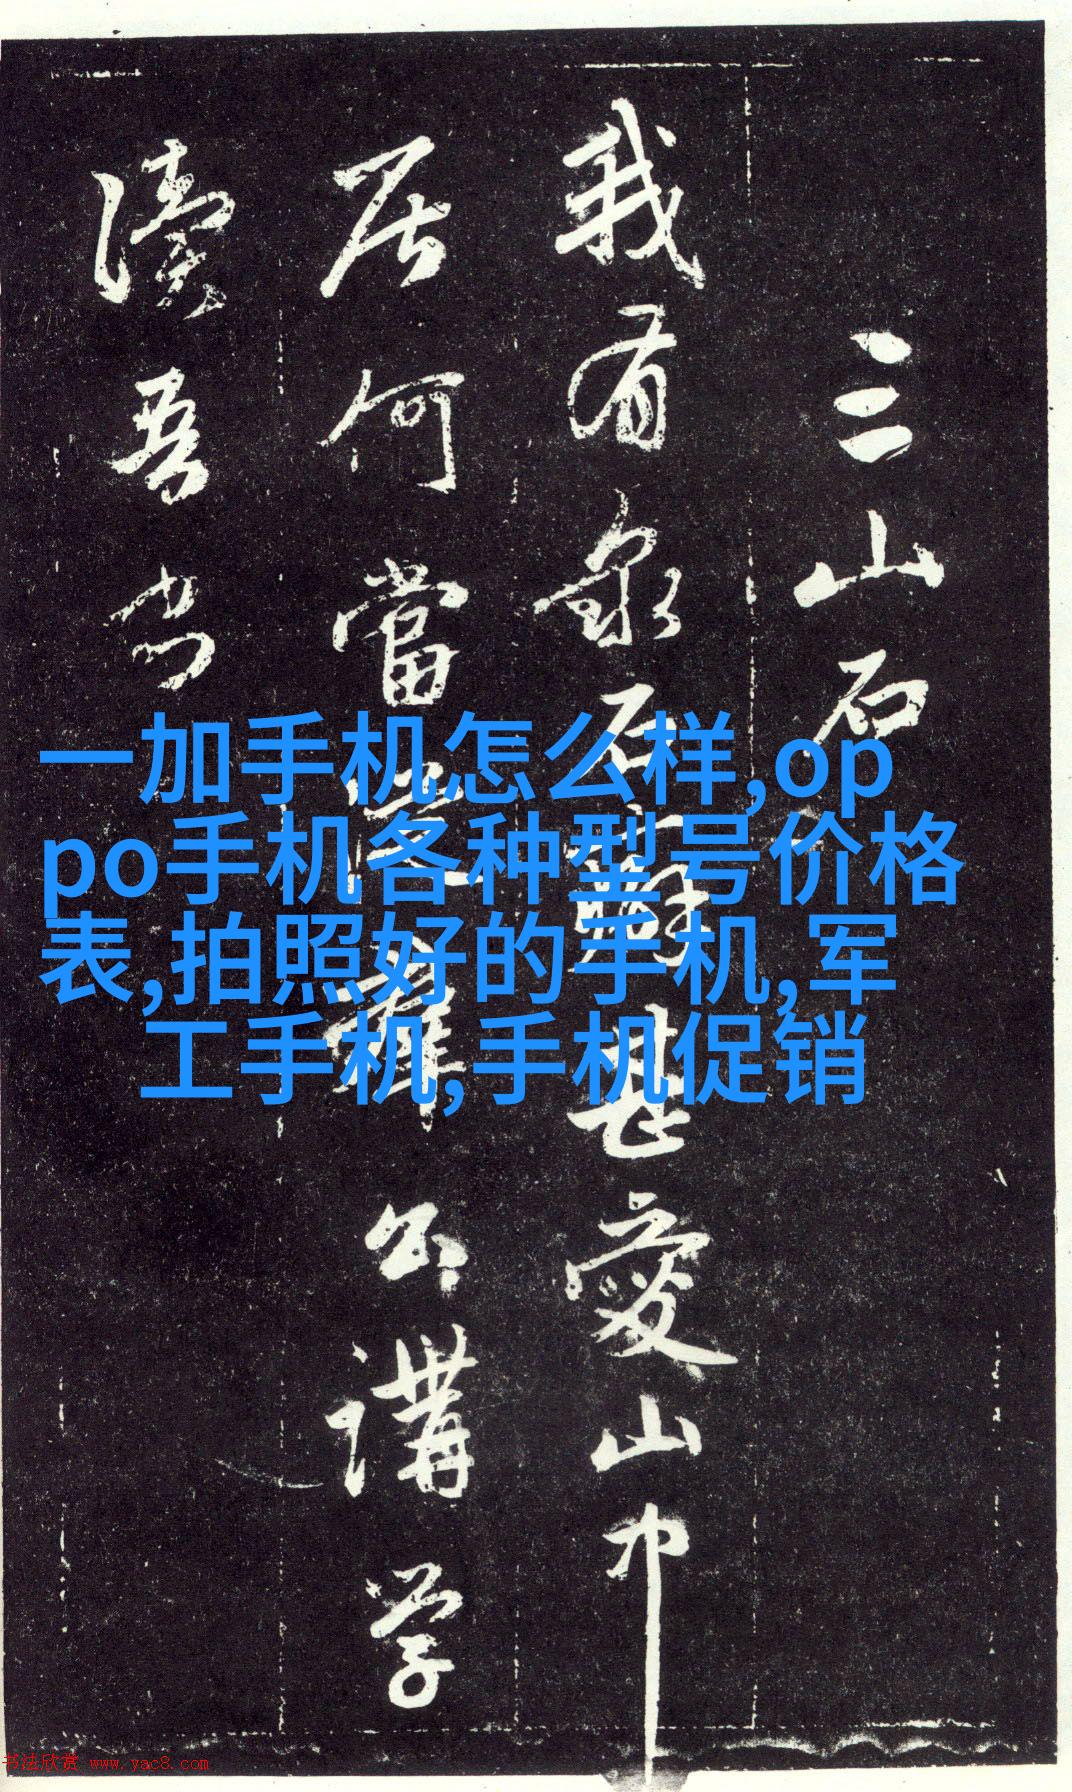 三山石
我有泉石癖甚愛山中
居何當
公講學
讀吾書
一加手机怎么样,op
po手机各种型号价格
表,拍照好的手机,军
工手机,手机促销
书法欣赏 www.yac8.com